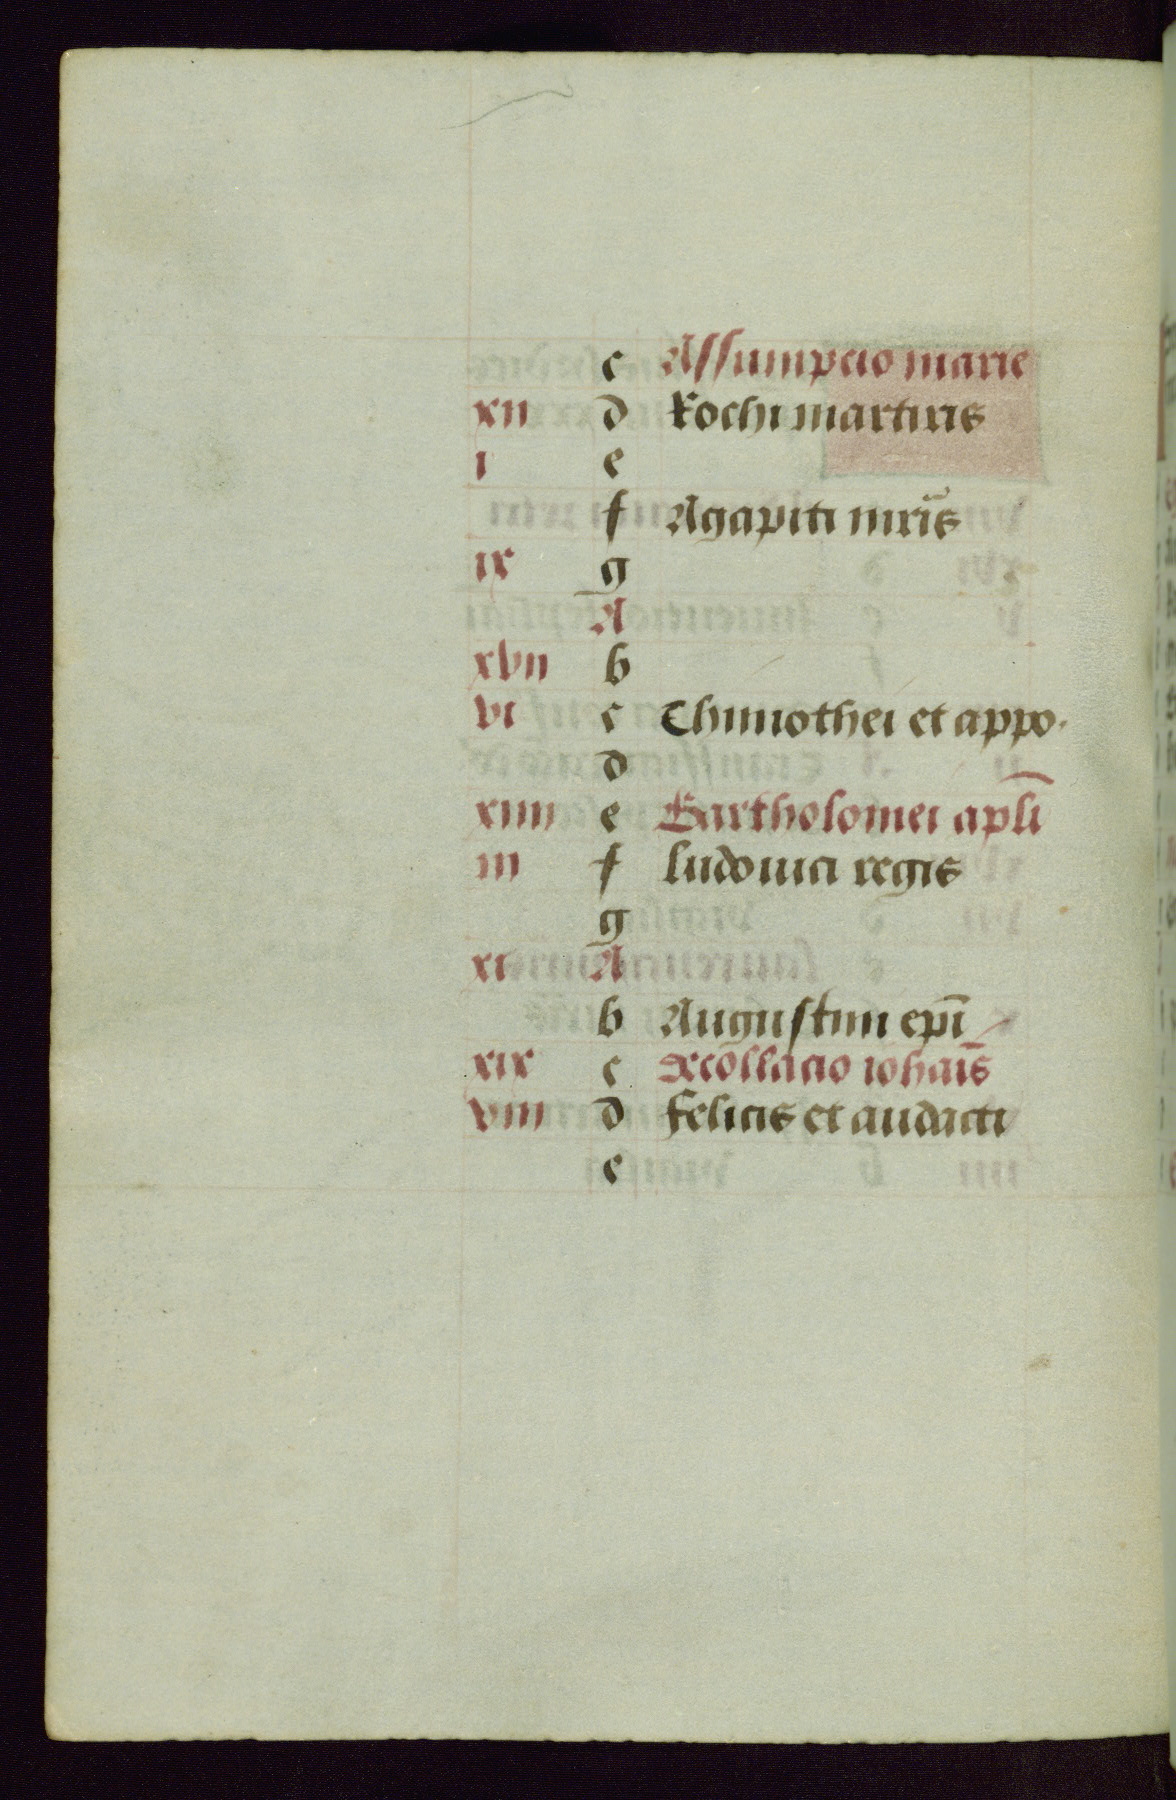 c Assumpcio marie
xii d Rochi martiris
i e
f Agapiti mr̄is
ix g
A
xvii b
vi c Thimothei et appo.
d
xiiii e Bartholomei apl̄i
iii f ludouici regis
g
xi A
b Augustini ep̄i
xix c Decollacio iohaīs
viii d felicis et audacti
e